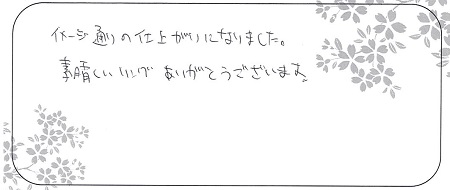 イメージ通りの仕上がりになりました。
素晴しいリングありがとうございます。